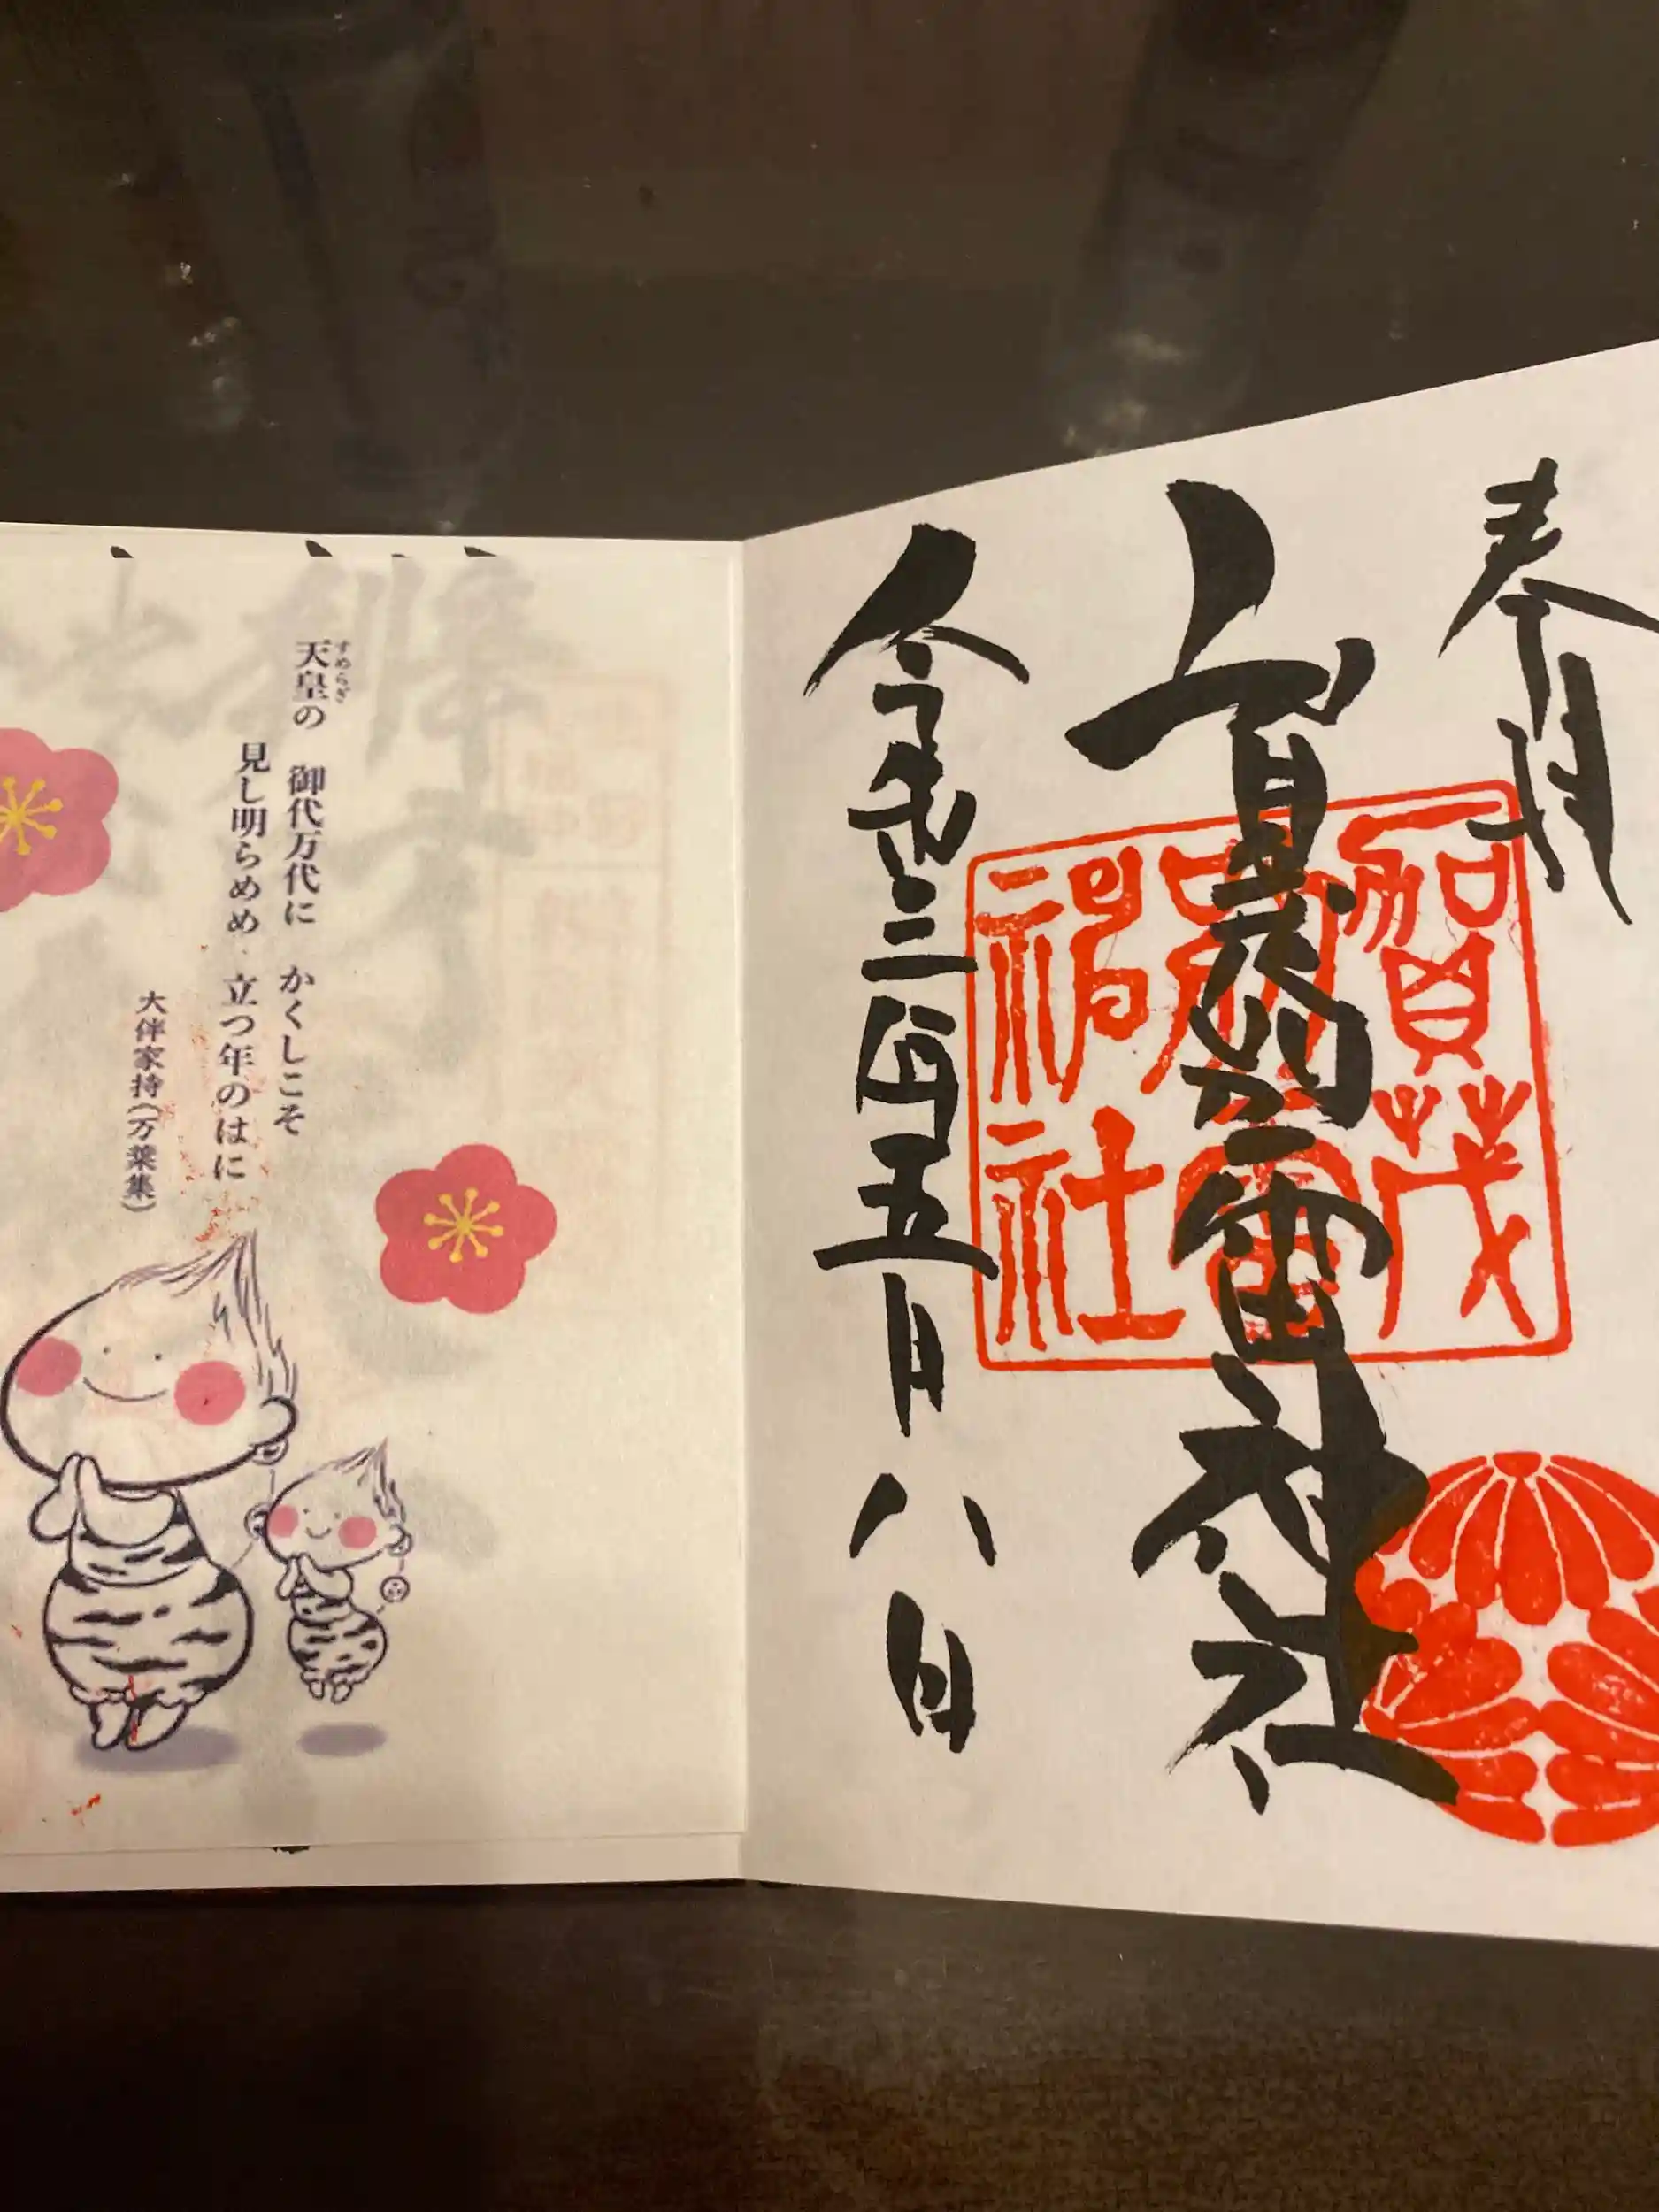 奉拝
賀茂別雷神社
賀茂
別雷
神社
令和三年五月八日
すめらぎ
天皇の　御代万代に　かくしこそ
見し明らめめ　立つ年のはに
大伴家持(万葉集)